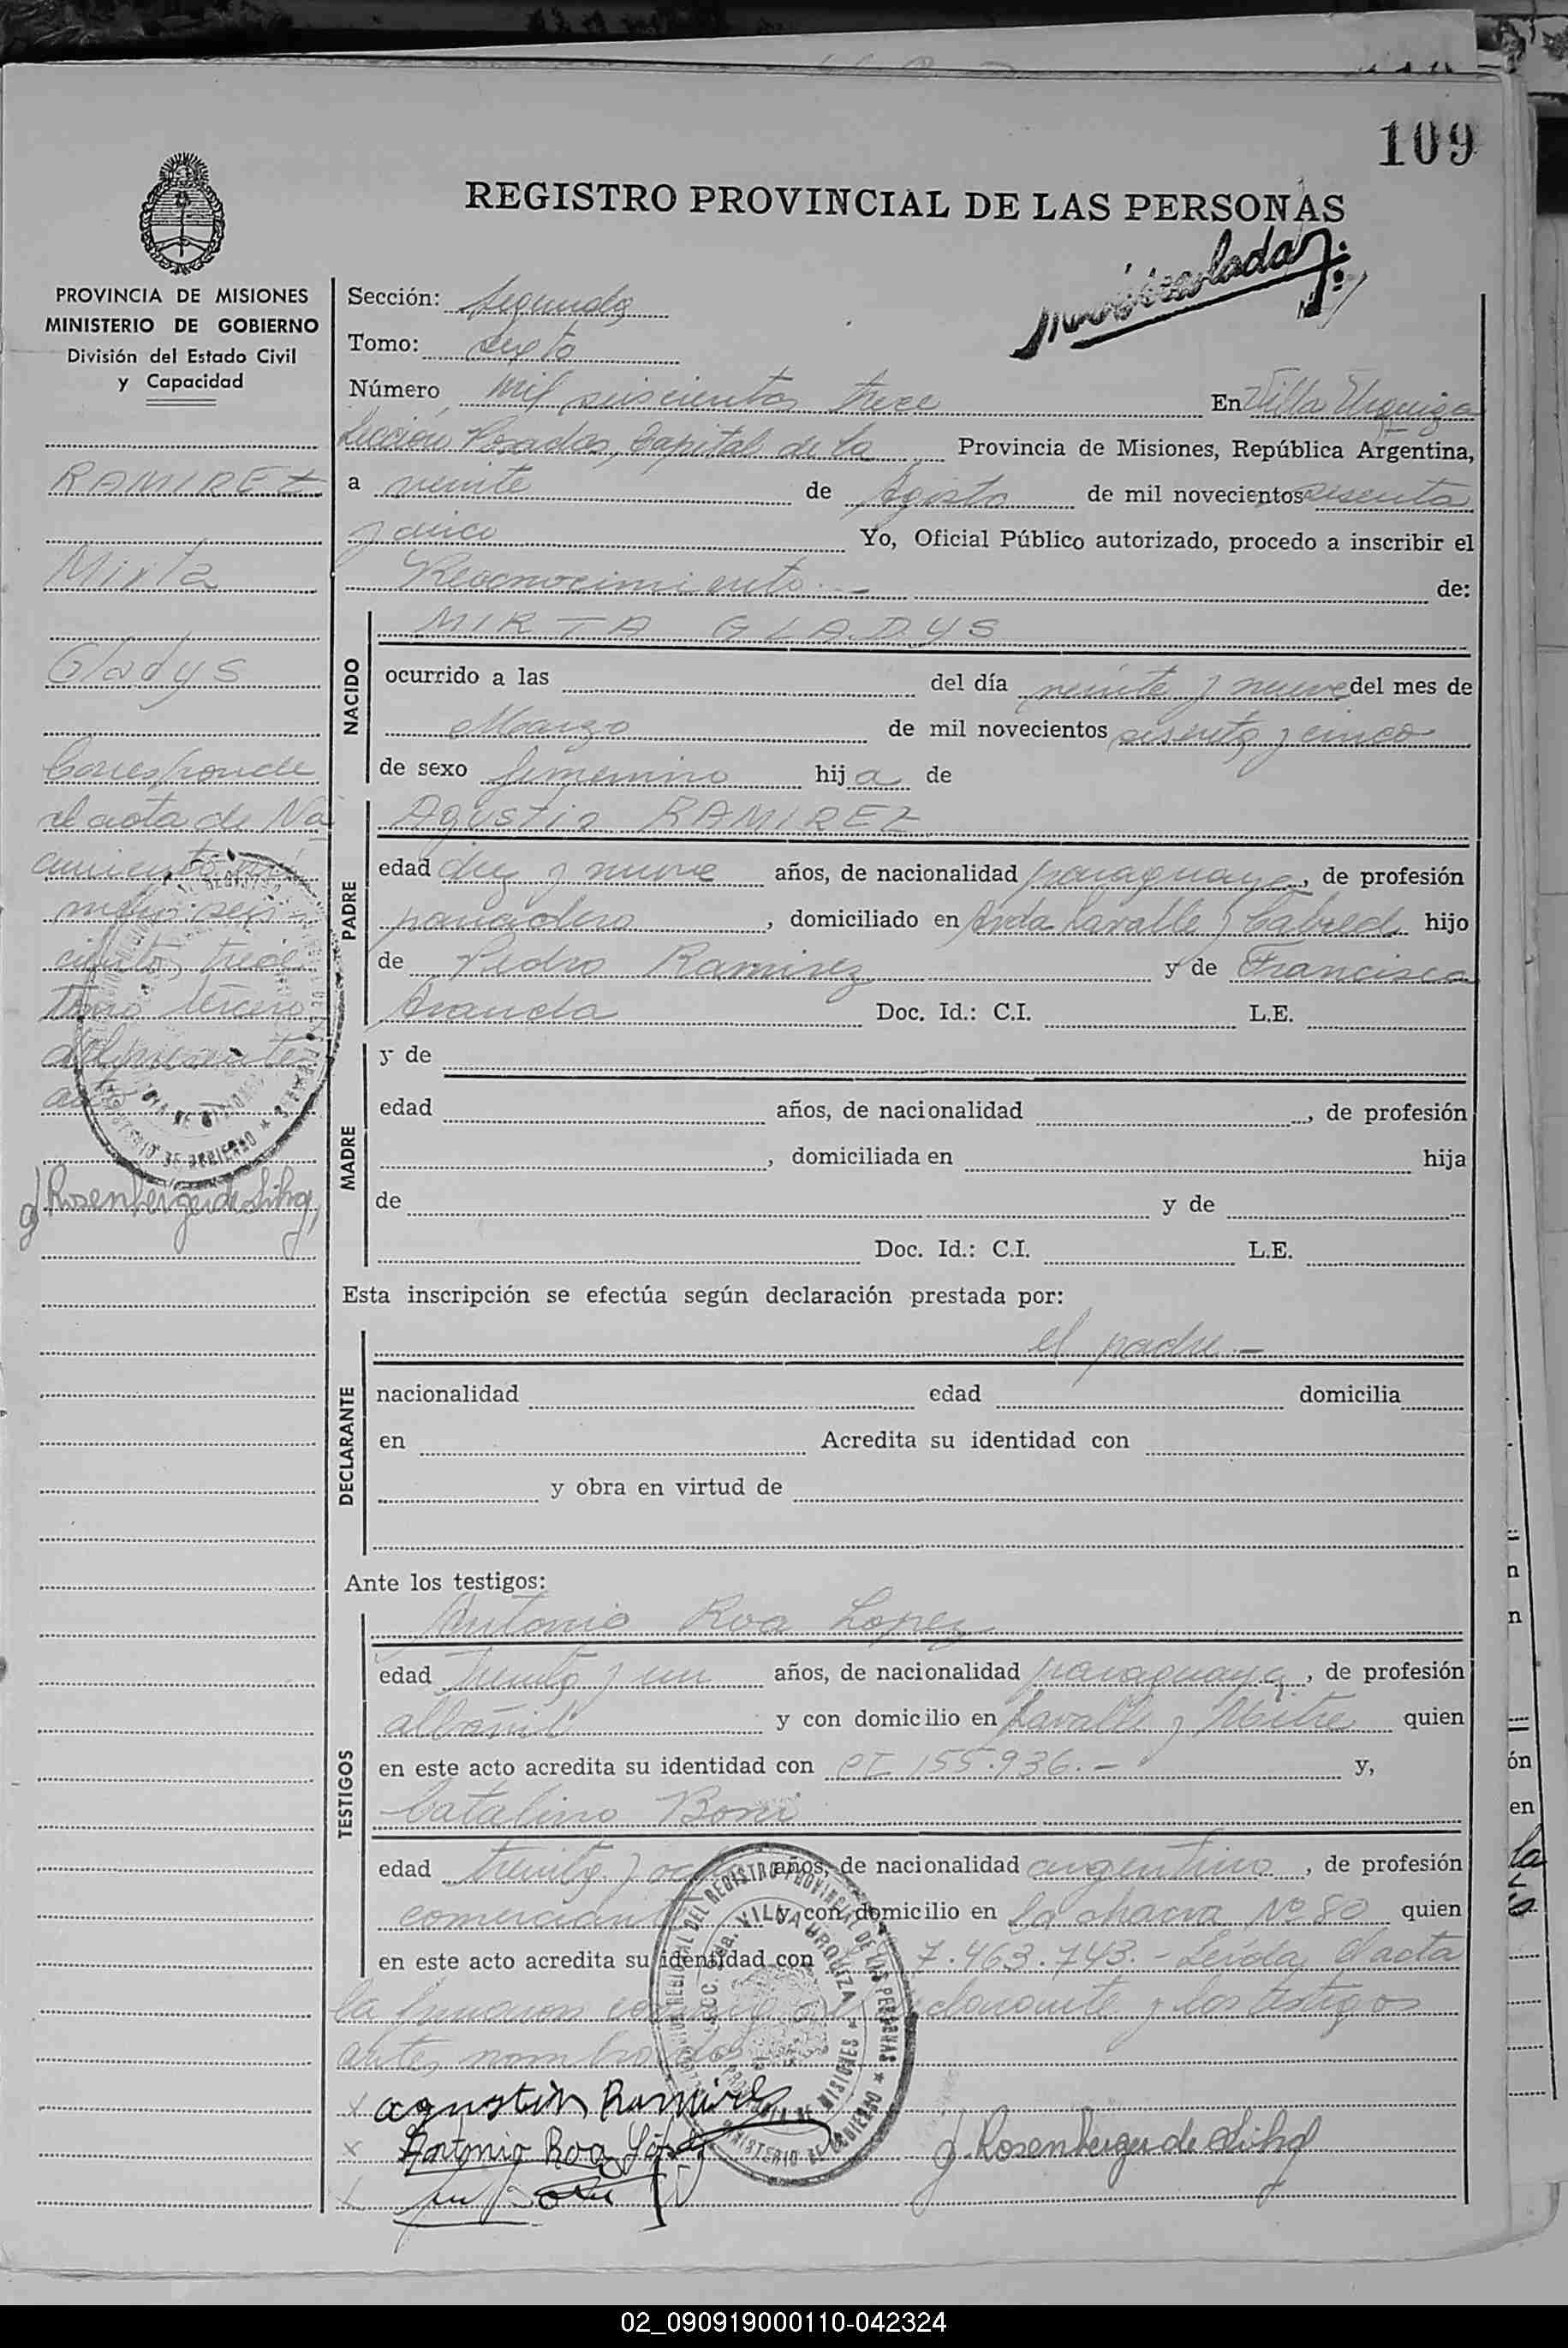 109
REGISTRO PROVINCIAL DE LAS PERSONAS
Matriculada
PROVINCIA DE MISIONES
MINISTERIO DE GOBIERNO
División del Estado Civil
y Capacidad
RAMIREZ
Mirta
Gladys
Corresponde
al acta de Na
cimiento
mero seis
cientos trece
Tomo tercero
del presente
año
g Rosenberger de
Sección: Segunda
Tomo: sexto
Número mil seiscientos trece En Villa Urquiza
Sección Posadas, Capital de la Provincia de Misiones, República Argentina,
a veinte de Agosto de mil novecientos sesenta
y cinco Yo, Oficial Público autorizado, procedo a inscribir el
Reconocimiento.- de:
NACIDO
MIRTA GLADYS
ocurrido a las del día veinte y nueve del mes de
Marzo de mil novecientos sesenta y cinco
de sexo femenino hija de
PADRE
Agustin RAMIREZ
edad diez y nueve años, de nacionalidad paraguaya, de profesión
panadero, domiciliado en Avda Lavalle y Cabred hijo
de Pedro Ramirez y de Francisca
Aranda Doc. Id.: C.I. L.E.
MADRE
y de
edad años, de nacionalidad , de profesión
, domiciliada en hija
de y de
Doc. Id.: C.I. L.E.
Esta inscripción se efectúa según declaración prestada por:
DECLARANTE
el padre.-
nacionalidad edad domicilia
en Acredita su identidad con
y obra en virtud de
Ante los testigos:
TESTIGOS
Antonio Roa Lopez
edad treinta y un años, de nacionalidad paraguaya, de profesión
albañil y con domicilio en Lavalle y Mitre quien
en este acto acredita su identidad con CI 155.936.- y,
Catalino Boni
edad treinta y ocho años, de nacionalidad argentino, de profesión
comerciante y con domicilio en la chacra Nº 80 quien
en este acto acredita su identidad con 7.463.743.- Leída el acta
la firmaron conmigo el declarante y los testigos
antes nombrados
x agustin Ramirez
x Antonio Roa López
g. Rosenberger de
SECC. 2da. VILLA URQUIZA
DEL REGISTRO PROVINCIAL DE LAS PERSONAS
PROVINCIA DE MISIONES
MINISTERIO DE GOBIERNO
02_090919000110-042324